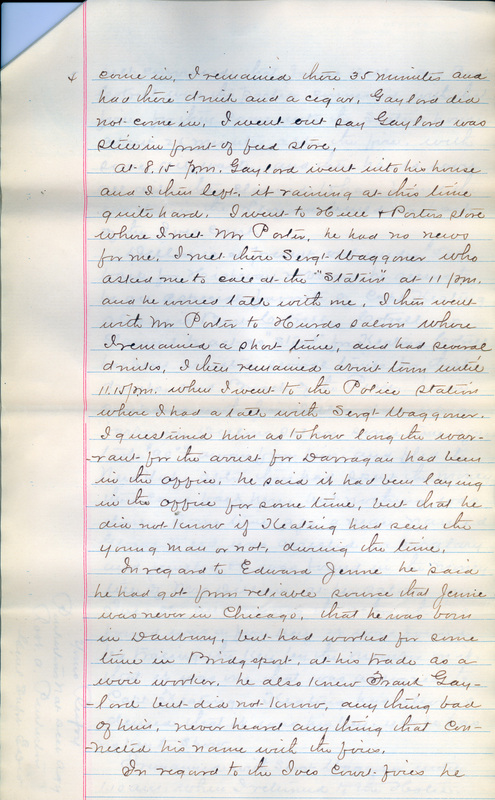 4
come in, I remained there 35 minutes and
had there drink and a cigar, Gaylord did
not come in, I went out say Gaylord was
still in front of feed store,
At 8.15 pm. Gaylord went into his house
and I then left. it raining at this time
quite hard. I went to Hull & Porters store
where I met Mr Porter, he had no news
for me, I met there Sergt Waggoner who
asked me to call at the "Station" at 11 pm.
and he would talk with me, I then went
with Mr Porter to Hurds saloon where
I remained a short time, and had several
drinks, I then remained about town until
11.15 pm. when I went to the Police Station
where I had a talk with Sergt Waggoner.
I questioned him as to how long the war-
-rant for the arrest for Darragan had been
in the office, he said it had been laying
in the office for some time, but that he
did not know if Keating had seen the
young man or not, during the time,
In regard to Edward Jenne he said
he had got from reliable source that Jenne
was never in Chicago, that he was born
in Danbury, but had worked for some
time in Bridgeport, at his trade as a
wire worker, he also knew Frank Gay-
-lord but did not know, any thing bad
of him, never heard any thing that con-
-nected his name with the fires.
In regard to the Ives Court fires he